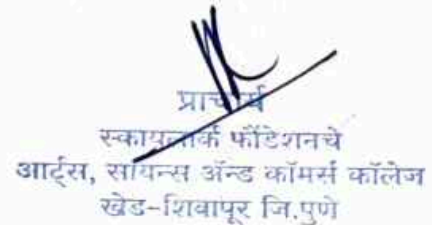 प्राचार्य
स्कायलार्क फौंडेशनचे
आर्ट्स, सायन्स अ‍ॅन्ड कॉमर्स कॉलेज
खेड-शिवापूर जि.पुणे